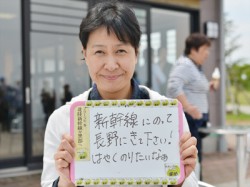 新幹線にのって
長野にきて下さい!
はやくのりたいなぁ